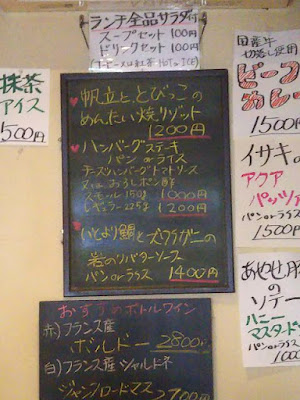 ランチ全品サラダ付
スープセット 100円
ドリンクセット 100円
抹茶
アイス
500円
帆立ととびっこの
めんたい焼リゾット
1200円
ハンバーグステキ
パン or ライス
チーズハンバーグトマトソース
又はおろしポン酢
スモール150g 1000円
レギュラー225g 1200円
いとより鯛とズワイガニの
岩のりバターソース
パン or ライス 1400円
おすすめボトルワイン
赤)フランス産
ボルドー 2800円
白)フランス産シャルドネ
国産牛
切落し使用
ビーフ
カレー
1500円
イサキの
アクア
パッツァ
パン or ライス
1500円
あやせ豚
のソテー
ハニー
マスタード
パン or ライス
1000円